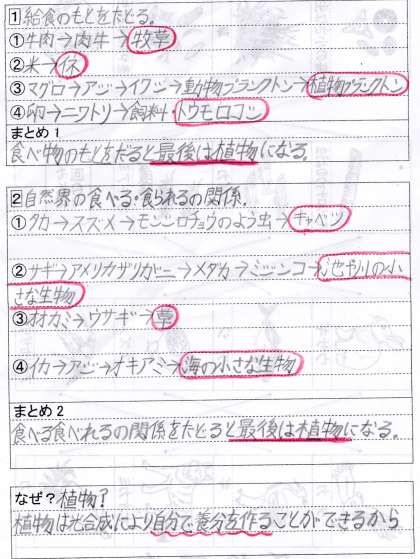 1 給食のもとをたどる。
①牛肉→肉牛→牧草
②米→イネ
③マグロ→アジ→イワシ→動物プランクトン→植物プランクトン
④卵→ニワトリ→飼料 トウモロコシ
まとめ1
食べ物のもとをたどると最後は植物になる。
2 自然界の食べる・食られるの関係.
①タカ→スズメ→モンシロチョウのよう虫→キャベツ
②サギ→アメリカザリガニ→メダカ→ミジンコ→池や川の小
さな生物
③オオカミ→ウサギ→草
④イカ→アジ→オキアミ→海の小さな生物
まとめ2
食べる食べれるの関係をたどると最後は植物になる。
なぜ?植物?
植物は光合成により自分で養分を作ることができるから